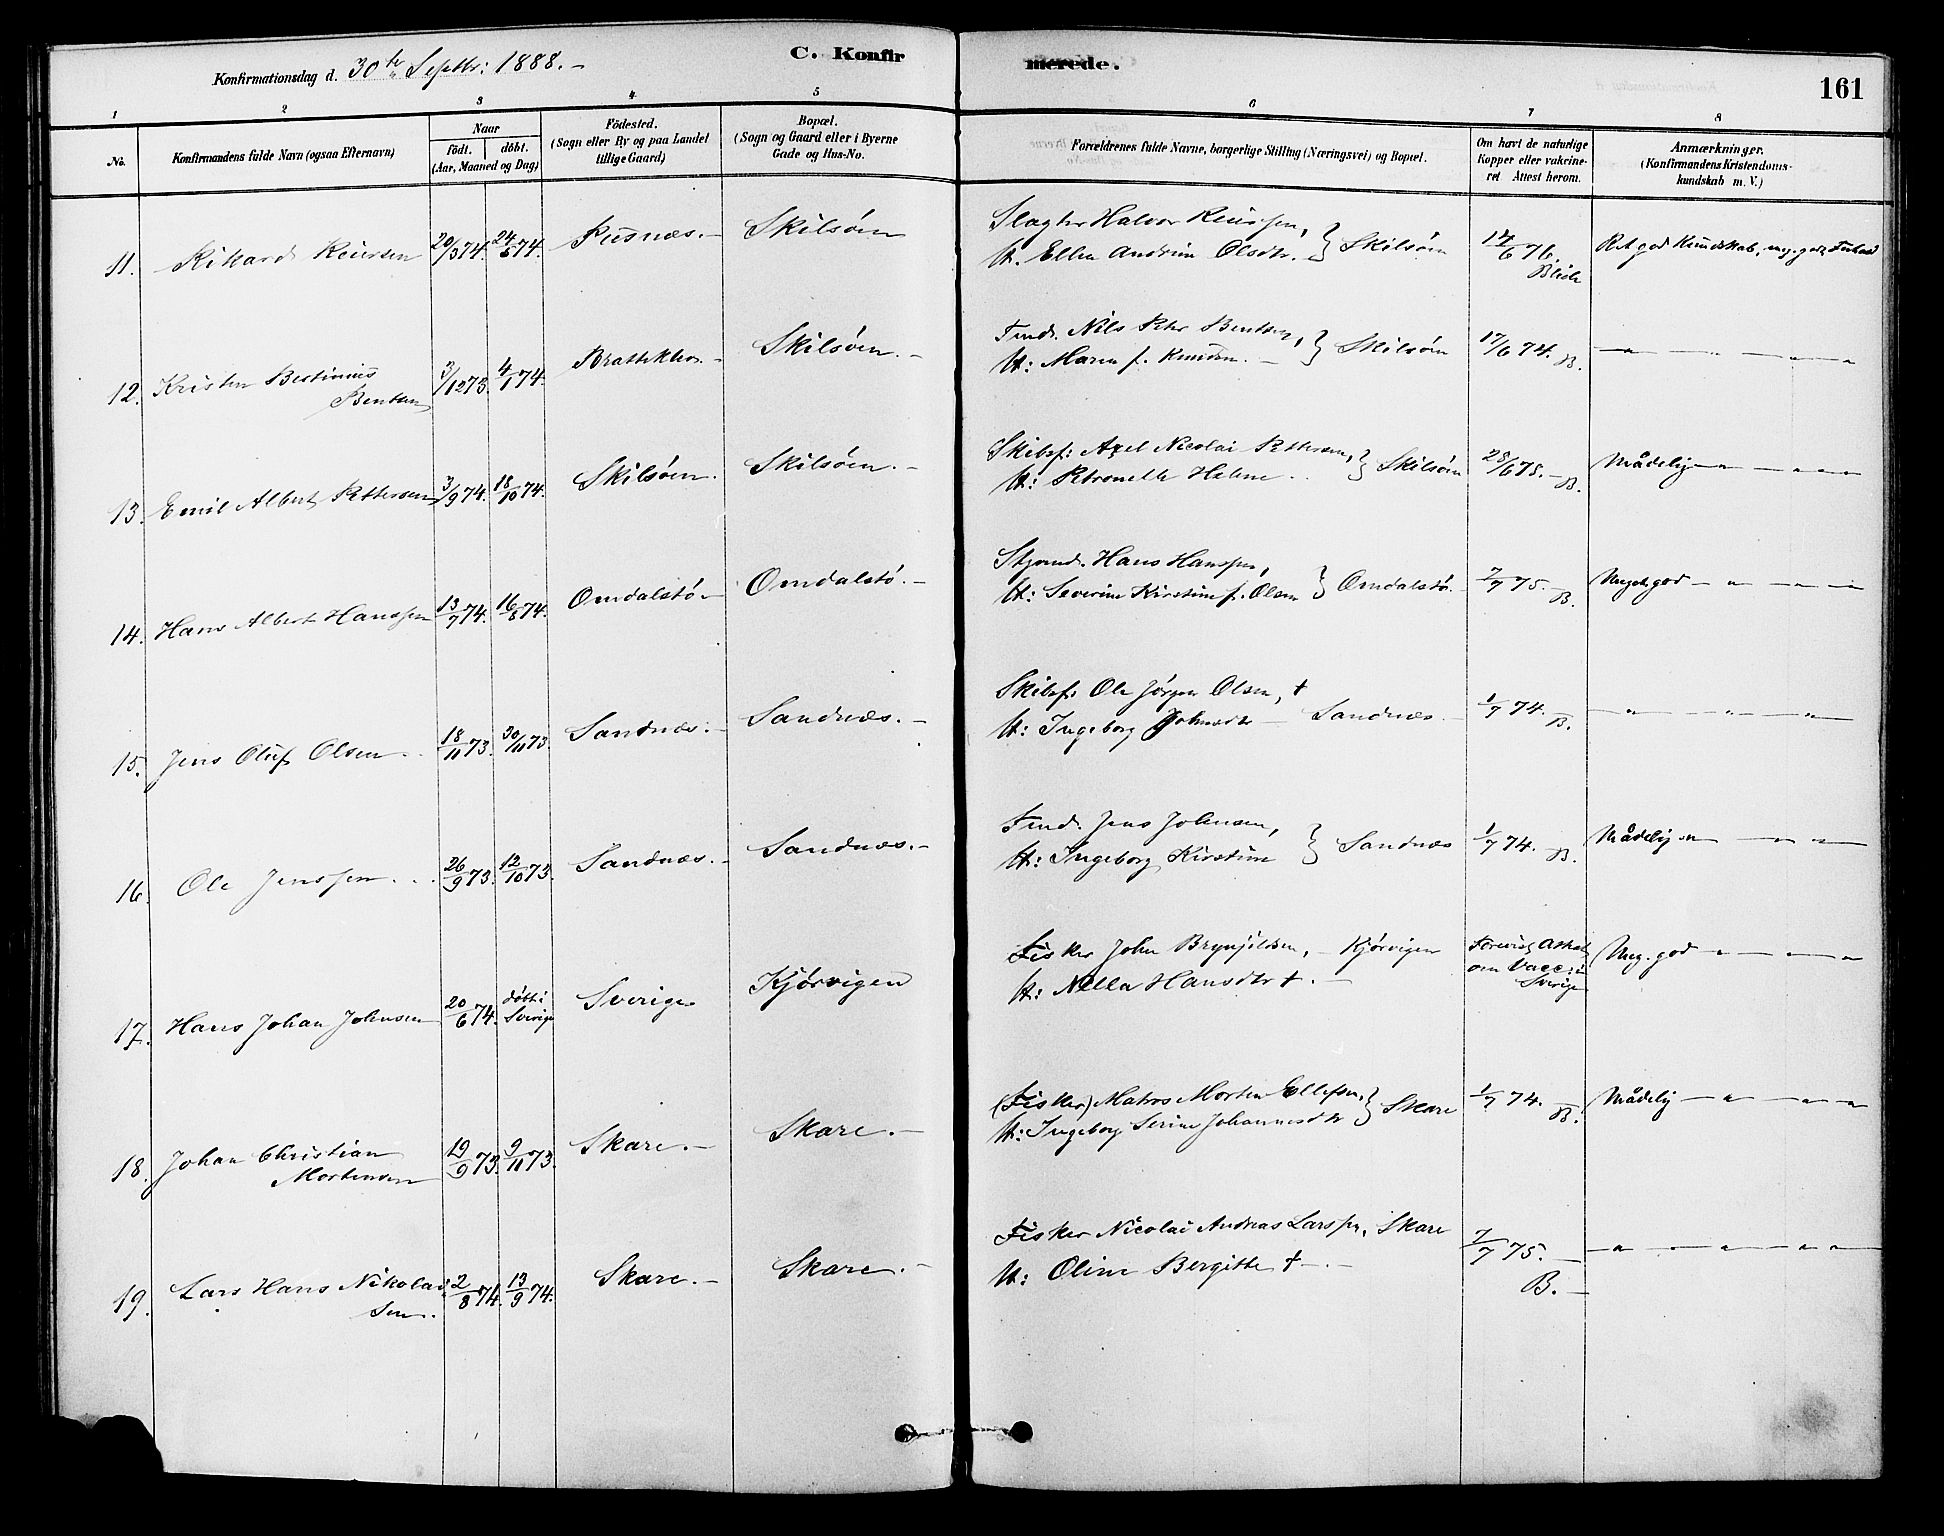 Konfirmationsdag d. 30te Septbr: 1888. –
C. Konfirmerede.
161
1 2 3 4 5 6 7 8
No.
Konfirmandens fulde Navn (ogsaa Efternavn)
Naar
födt. döbt.
(Aar, Maaned og Dag)
Födested.
(Sogn eller By og paa Landet
tillige Gaard)
Bopæl.
(Sogn og Gaard eller i Byerne
Gade og Hus-No.
Forældrenes fulde Navne, borgerlige Stilling (Næringsvei) og Bopæl.
Om havt de naturlige
Kopper eller vakcine-
ret Attest herom.
Anmærkninger.
(Konfirmandens Kristendoms-
kundskab m. V.)
11. Rikard Reiersen 20/3 74. 24/5 74. Pusnæs. – Skilsöen
Slagter Halvor Reiersen,
H. Ellen Andrine Olsdtr. } Skilsöen
17/6 76.
Ret god Kundskab, meg. god Forhold
12. Kristen Bestinius
Bentsen
3/12 73. 4/1 74. Bratteklev. – Skilsöen. –
Tmd. Nils Peter Bentsen,
H: Maren f. Knudsen. – } Skilsöen
17/6 74. B.
– „ – „ – „ – „ –
13. Emil Albert Pettersen 3/9 74. 18/10 74. Skilsöen. Skilsöen. –
Skibsf: Axel Nicolai Pettersen,
H: Petronelle Helene . . } Skilsöen
28/6 75. – B.
Mådelig – „ – „ – „ –
14. Hans Albert Hanssen 13/7 74. 16/8 74. Omdalstö – Omdalstö. –
Styrmd. Hans Hanssen,
H: Severine Kirstine f. Olsen } Omdalstö.
7/7 75. B.
Meget god – „ – „ – „
15. Jens Oluf Olsen . . 18/11 73. 30/11 73. Sandnæs. – Sandnæs. –
Skibsf: Ole Jörgen Olsen, †
H: Ingeborg Johnsdtr – Sandnæs. –
1/7 74. B.
– „ – „ – „ –
16. Ole Jenssen . . . 26/9 73. 12/10 73. Sandnæs. – Sandnæs. –
Tmd. Jens Johnsen,
H: Ingeborg Kirstine } Sandnæs
1/7 74. B.
Mådelig „ – „ – „ –
17. Hans Johan Johnsen 20/6 74. döbt i
Sverige
Sverige Kjörvigen
Fisker John Brynjildsen, – Kjörvigen
H: Nella Hansdtr † . –
Forevist Attest
om Vacc: i
Sverige
Meg. god – „ – „ – „
18. Johan Christian
Mortensen
19/9 73. 9/11 73. Skare. – Skare. –
(Fisker) Matros Morten Ellefsen,
H: Ingeborg Serine Johannesdtr } Skare
1/7 74. B.
Mådelig – „ – „ – „
19. Lars Hans Nikolai
Sen.
2/8 74. 13/9 74. Skare. – Skare. –
Fisker Nicolai Andreas Larssen, Skare
H: Oline Bergitte † – . –
7/7 75. –
B. –
– „ – „ – „ – „ –